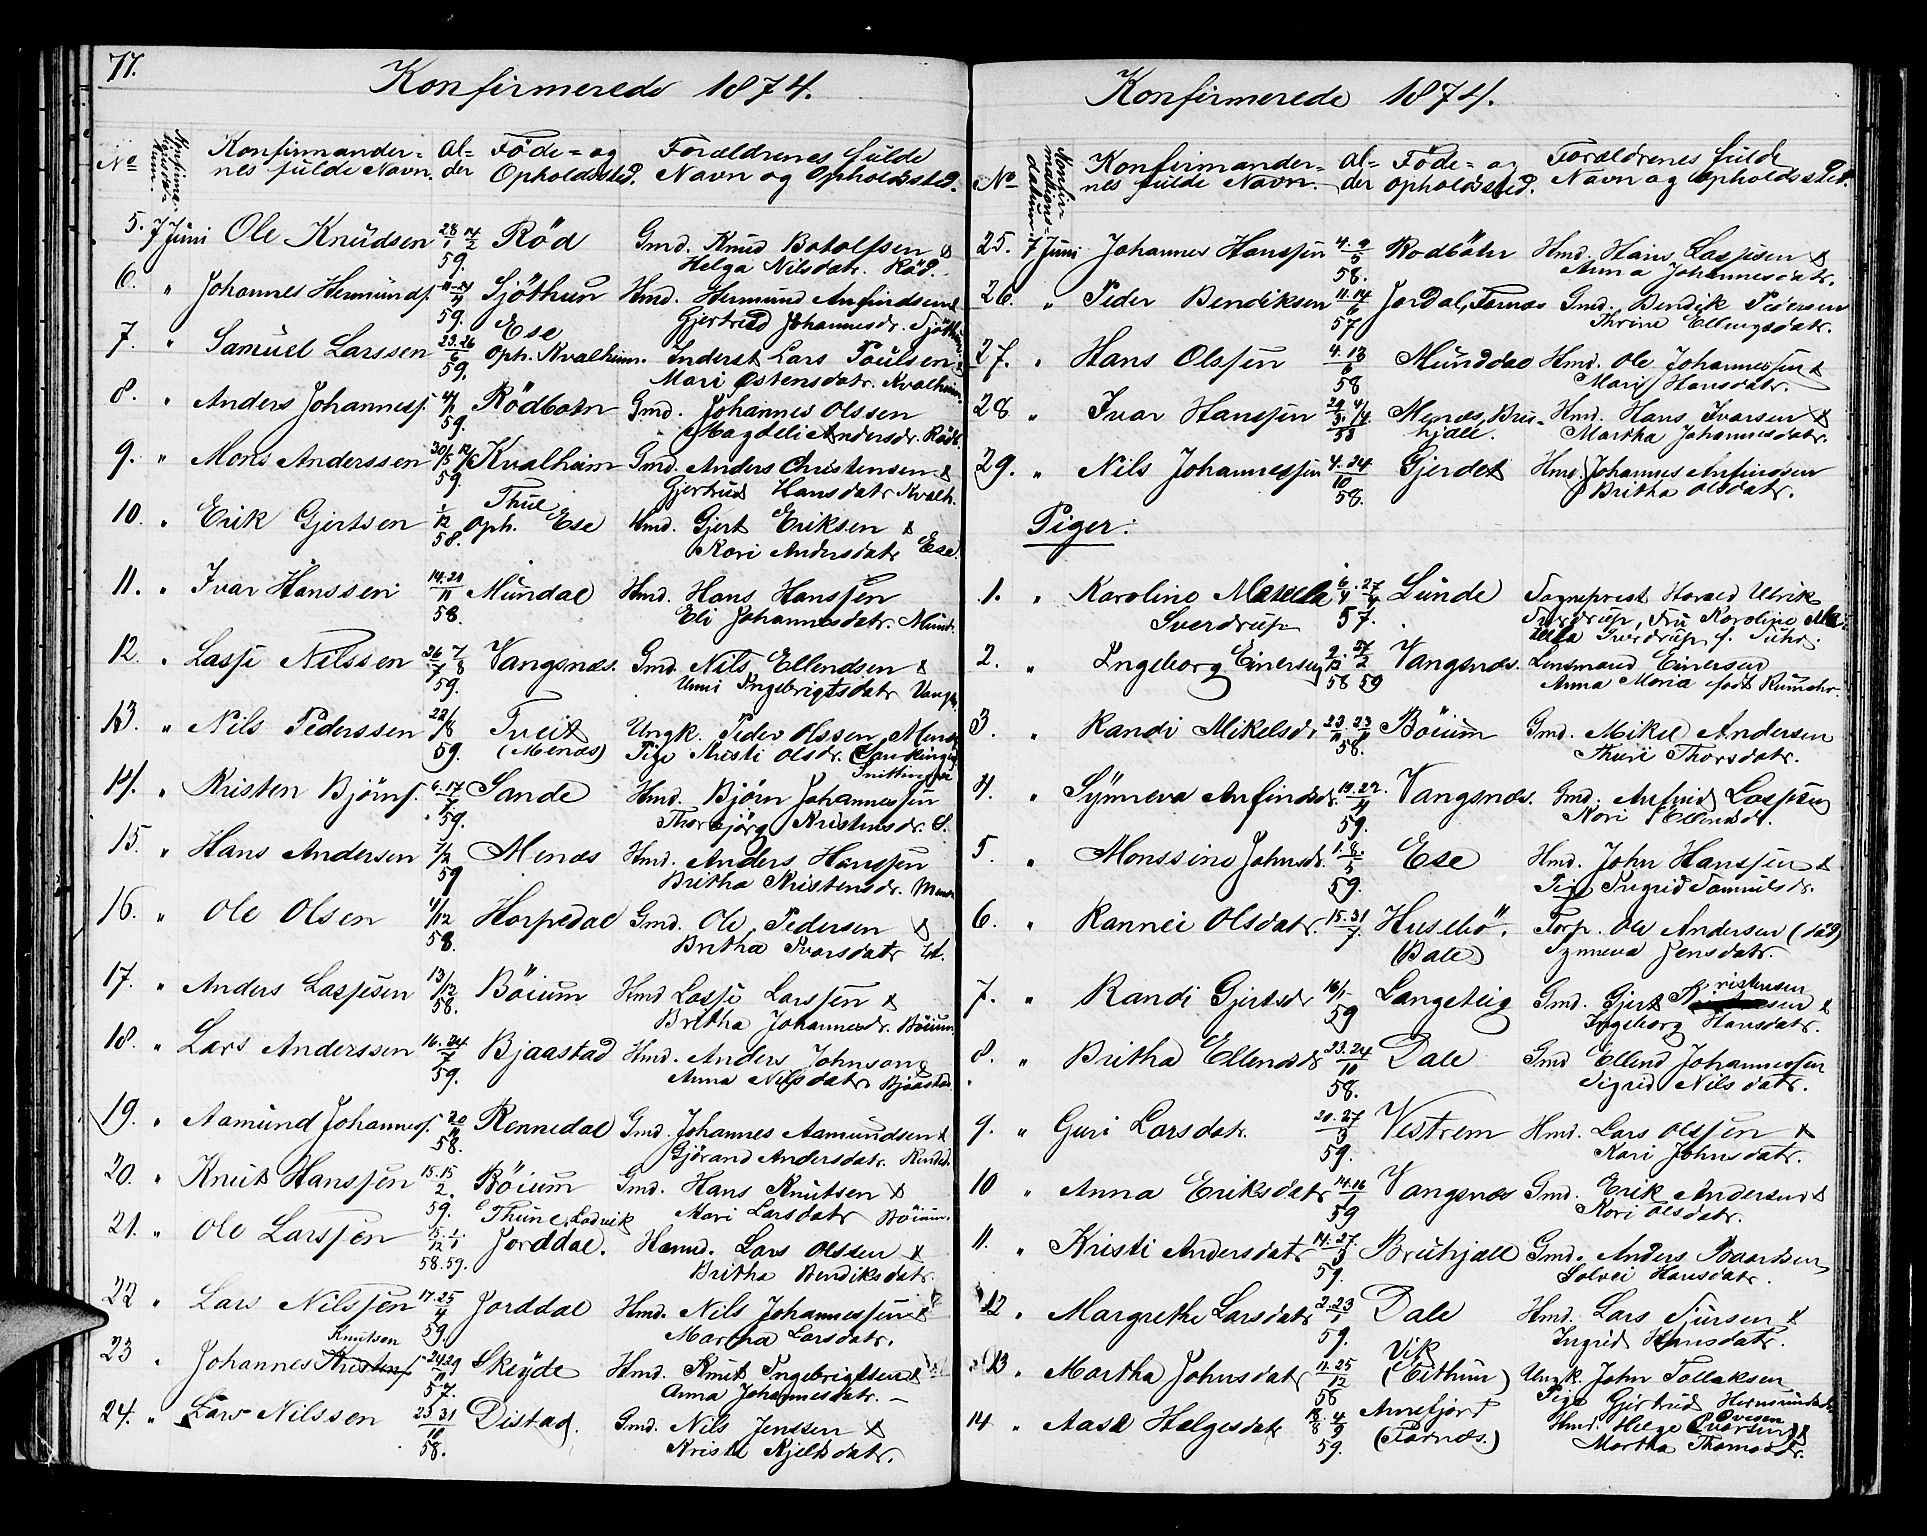 77.
Konfirmerede 1874.
No Konfirmander= Al= Föde= og Forældrenes fulde
nes fulde Navn. der Opholdssted. Navn og Opholdssted.
5. 7 Juni Ole Knudsen 28/1 14/2 59. Röd Gmd. Knud Botolfsen &
Helga Nilsdatr. Röd.
6. " Johannes Hermunds. 59. Sjöthun Hmd. Hermund Anfindsen &
Gjertrud Johannesdr. Sjöthun
7. " Samuel Larssen 23.26/6 59. Ese
oph. Kvalheim. Inderst Lars Poulsen &
Mari Østensdatr. Kvalheim
8. " Anders Johanness. 59. Rödbotn Gmd. Johannes Olssen
Magdeli Andersdr. Rödb.
9. " Mons Anderssen 59. Kvalheim Gmd. Anders Christensen &
Gjertrud Hansdatr Kvalh.
10. " Erik Gjertsen 58. Thue
oph. Ese Hmd. Gjert Eriksen &
Kari Andersdatr Ese.
11. " Ivar Hanssen 14.21/11 58. Mundal Hmd. Hans Hanssen
Eli Johannesdatr. Mund.
12. " Lasse Nilssen 26/7 7/8 59. Vangsnæs. Gmd. Nils Ellendsen &
Unni Ingebrigtsdatr Vangs.
13. " Nils Pederssen 22/8 59. Tveit
(Menæs) Ungk. Peder Olssen, Menæs
Pige Kristi Olsdr.
14. " Kristen Björns. 59. Sande Hmd. Björn Johannessen
Thorbjörg Kristensdr. S.
15. " Hans Andersen 59 Menæs Hmd. Anders Hanssen
Britha Kristensdr. Menæs
16. " Ole Olsen 4/12 58. Horpedal Gmd. Ole Pedersen &
Britha Ivarsdatr
17. " Anders Lassesen 13/12 58. Böium Hmd Lasse Larssen &
Britha Johannesdr. Böium
18. " Lars Anderssen 16.24/7 59. Bjaastad Hmd. Anders Johnson &
Anna Nilsdatr Bjaastad
19. " Aamund Johanness. 58. Rennedal Gmd. Johannes Aamundsen &
Gjörand Andersdatr. Rended.
20. " Knut Hanssen 15.15/2 59. Böium Gmd. Hans Knutsen &
Mari Larsdatr Böium.
21. " Ole Larssen 15/12 1/1 58.59. Thune, Ladvik
Jorddal. Hmd. Lars Olssen &
Britha Bendiksdatr.
22 " Lars Nilssen 17.25/4 59. Jorddal Hmd. Nils Johannessen &
Martha Larsdatr.
23 " Johannes Knutson 57. Skeyde Hmd. Knut Ingebrigtsen &
Anna Johannesdatr. –
24. " Lars Nilssen 23.31/10 58. Distad. Gmd. Nils Jenssen &
Kristi Kjeldsdatr.
Konfirmerede 1874.
No Konfir=
mations=
datum. Konfirmander= Al= Föde= og Forældrenes fulde
nes fulde Navn. der opholdssted. Navn og opholdssted.
25. 7 Juni Johannes Hanssen 4.9/5 58. Rodbotn Hmd. Hans Lassesen &
Anna Johannesdatr.
26. " Peder Bendiksen 11.14/6 57 Jordal, Fornæs Gmd. Bendik Pedersen
Thrine Ellingsdatr.
27. " Hans Olssen 4.13/6 58 Munddal Hmd. Ole Johannessen &
Mari Hansdatr.
28 " Ivar Hanssen 58 Menæs, Bru=
hjall. Hmd. Hans Ivarsen &
Martha Johannesdatr.
29. " Nils Johannessen 4.24/10 58. Gjerdet Hmd. Johannes Anfinssen
Britha Olsdatr.
Piger:
1. " Karoline Metella
Sverdrup 57. Lunde Sogneprest Harald Ulrik
Sverdrup, Fru Karoline Me=
tella Sverdrup f. Suhr.
2. " Ingeborg Einersen 58 59 Vangsnæs. Lensmand Einersen
Anna Maria født
3. " Randi Mikelsdr 58. Böium Gmd. Mikel Andersen
Thuri Thorsdatr.
4. " Synneva Anfindsdr. 59. Vangsnæs. Gmd. Anfind Lassesen
Kari Ellendsdr.
5. " Monssine Johnsdr. 1.8/5 59. Ese Hmd. John Hanssen &
Pige Ingrid Samuelsdr.
6. " Rannei Olsdatr. 15.31/7 Husebö.
(Bale) Forp. Ole Andersen
Synneva Jensdatr.
7. " Randi Gjertsdr 16/1 59 Langeteig Gmd. Gjert Kristensen &
Ingeborg Hansdatr.
8. " Britha Ellendsdr 23.24/10 58. Dale Gmd Ellend Johannessen
Sigrid Nilsdatr.
9. " Guri Larsdatr. 20.27/3 59. Vestrem Hmd. Lars Olssen &
Kari Johnsdatr.
10 " Anna Eriksdatr 14.16/1 59 Vangsnæs Gmd. Erik Andersen &
Kari Olsdatr.
11. " Kristi Andersdatr 14.27/3 59. Bruhjall Gmd. Anders Baardsen
Solvei Hansdatr.
12 " Margrethe Larsdatr 2.23/1 59. Dale Hmd. Lars Sjursen &
Ingrid Hansdatr.
13 " Martha Johnsdatr 11.25/12 58 Vik
(Eithun) Ungk. John Tollaksen
Pige Gjertrud Hermundsdr.
14 " Aase Helgesdatr 59. Arnefjord
(Fornæs.) Hmd. Helge Ovesen &
Martha Thomasdr.